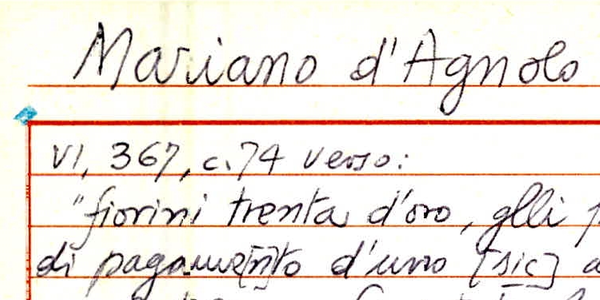 Mariano d'Agnolo
VI, 367, c. 74 verso:
"fiorini trenta d'oro, glli p
di pagame[n]to d'uno [sic] a